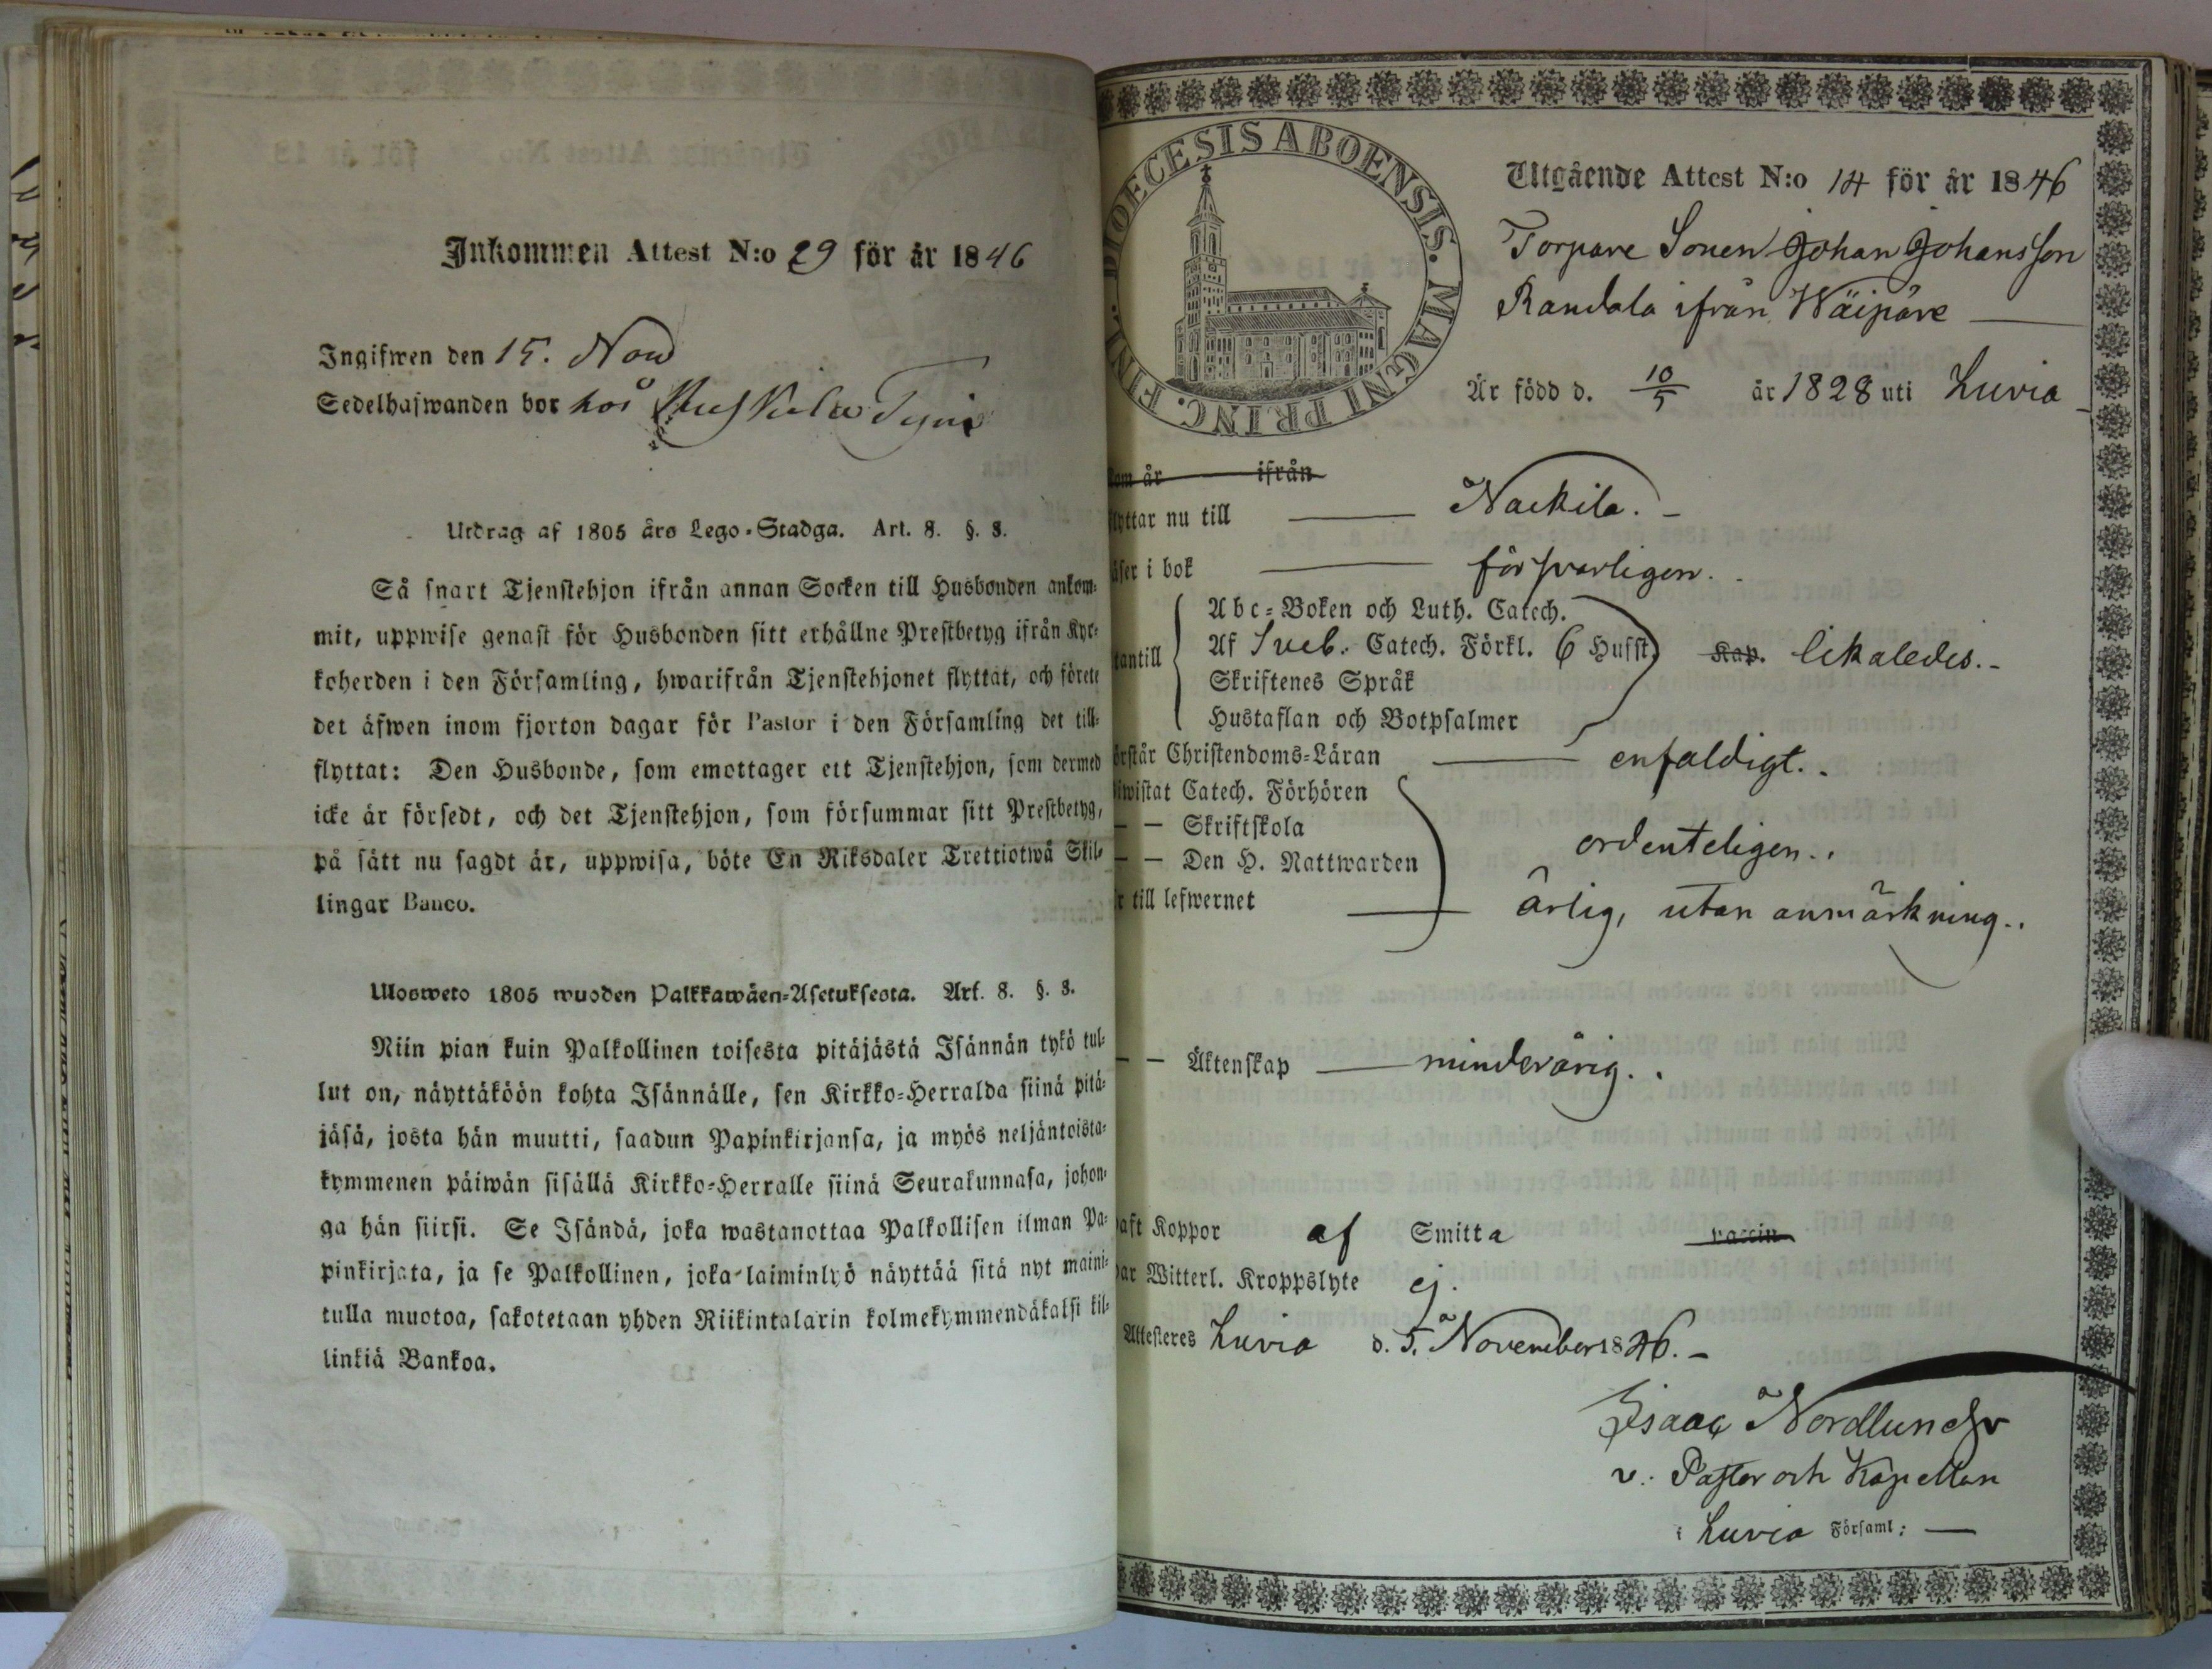 Inkommen Attest N:o 29 för år 1846
Ingifwen den 15. Nov
Sedelhafwanden bor hos
Utdrag af 1805 års Lego-Stadga. Art. 8. §. 3.
Så snart Tjenstehjon ifrån annan Socken till Husbonden ankom-
mit, uppwise genast för Husbonden sitt erhållne Prestbetyg ifrån Kyr-
koherden i den Församling, hwarifrån Tjenstehjonet flyttat, och förete
det äfwen inom fjorton dagar för Pastor i den Församling det till-
flyttat: Den Husbonde, som emottager ett Tjenstehjon, som dermed
icke är försedt, och det Tjenstehjon, som försummar sitt Prestbetyg,
på sätt nu sagdt är, uppwisa, böte En Riksdaler Trettiotwå Skil-
lingar Banco.
Ulosweto 1805 wuoden Palkkawäen-Asetuksesta. Art. 8. §. 3.
Niin pian kuin Palkollinen toisesta pitäjästä Isännän tykö tul-
lut on, näyttäköön kohta Isännälle, sen Kirkko-Herralda siinä pitä-
jäsä, josta hän muutti, saadun Papinkirjansa, ja myös neljäntoista-
kymmenen päiwän sisällä Kirkko-Herralle siinä Seurakunnasa, johon-
ga hän siirsi. Se Isändä, joka wastanottaa Palkollisen ilman Pa-
pinkirjata, ja se Palkollinen, joka laiminlyö näyttää sitä nyt maini-
tulla muotoa, sakotetaan yhden Riikintalarin kolmekymmendäkaksi kil-
linkiä Bankoa.
DIOECESIS ABOENSIS. MAGNI PRINC. FINL.
Utgående Attest N:o 14 för år 1846
Torpare Sonen Johan Johansson
Randala ifrån Wäipäre
Är född d. 10/5 år 1828 uti Luvia
som är ifrån
flyttar nu till Nackila.
läser i bok försvarligen.
Abc-Boken och Luth. Catech.
utantill Af Sveb. Catech. Förkl. 6 Hufst. Kap. likaledes.
Skriftenes Språk
Hustaflan och Botpsalmer
örstår Christendoms-Läran enfaldigt.
iwistat Catech. Förhören
— — Skriftskola ordenteligen.
— — Den H. Nattwarden
r till lefwernet ärlig, utan anmärkning.
— — Äktenskap minderårig.
haft Koppor af Smitta vaccin
har Witterl. Kroppslyte ej.
Attesteres Luvia d. 5. November 1846.
Isaac Nordlund
v. Pastor och Kapellan
i Luvia Församl: